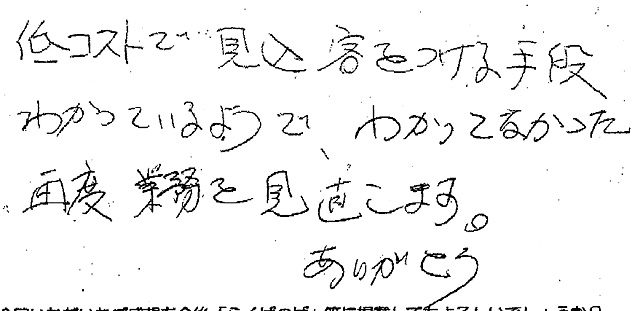 低コストで見込客をつける手段
わかっているようで、わかってなかった
再度業務を見直こます。
ありがとう